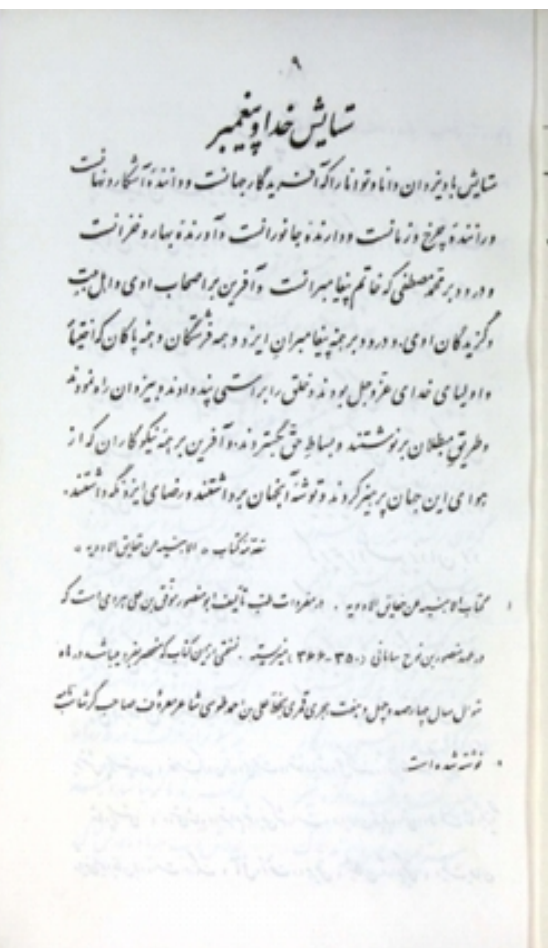 ۹
ستایش خدا و پیغمبر
ستایش باد یزدان دانا و توانا را که آفریدگار جهانست و دانندهٔ آشکار و نهانست
و رانندهٔ چرخ و زمانست و دارندهٔ جانورانست و آورندهٔ بهار و خزانست
و درود بر محمد مصطفی که خاتم پیغامبرانست و آفرین بر اصحاب اوی و اهل بیت
و گزیدگان اوی. و درود بر همه پیغامبران ایزد و همه فرشتگان و همه پاکان که اختیار
و اولیای خدای عزوجل بودند و خلق را براستی پند دادند و بیزدان راه نمودند
و طریق مبطلان برنوشتند و بساط حق بگستردند. و آفرین بر همه نیکوکاران که از
هوای این جهان پرهیز کردند و توشهٔ آنجهان برداشتند و رضای ایزد نگه داشتند.
مقدمه کتاب « الابنیه عن حقایق الادویه »
۱ کتاب الابنیه عن حقایق الادویه . در مفردات طب تألیف ابومنصور موفق بن علی هروی است که
در عهد منصور بن نوح سامانی (۳۵۰-۳۶۶) میزیسته . نسختی از این کتاب که منحصر بفرد میباشد در ماه
شوال سال چهارصد و چهل و هفت هجری قمری بخط علی بن احمد طوسی شاعر معروف صاحب گرشاسب نامه
نوشته شده است